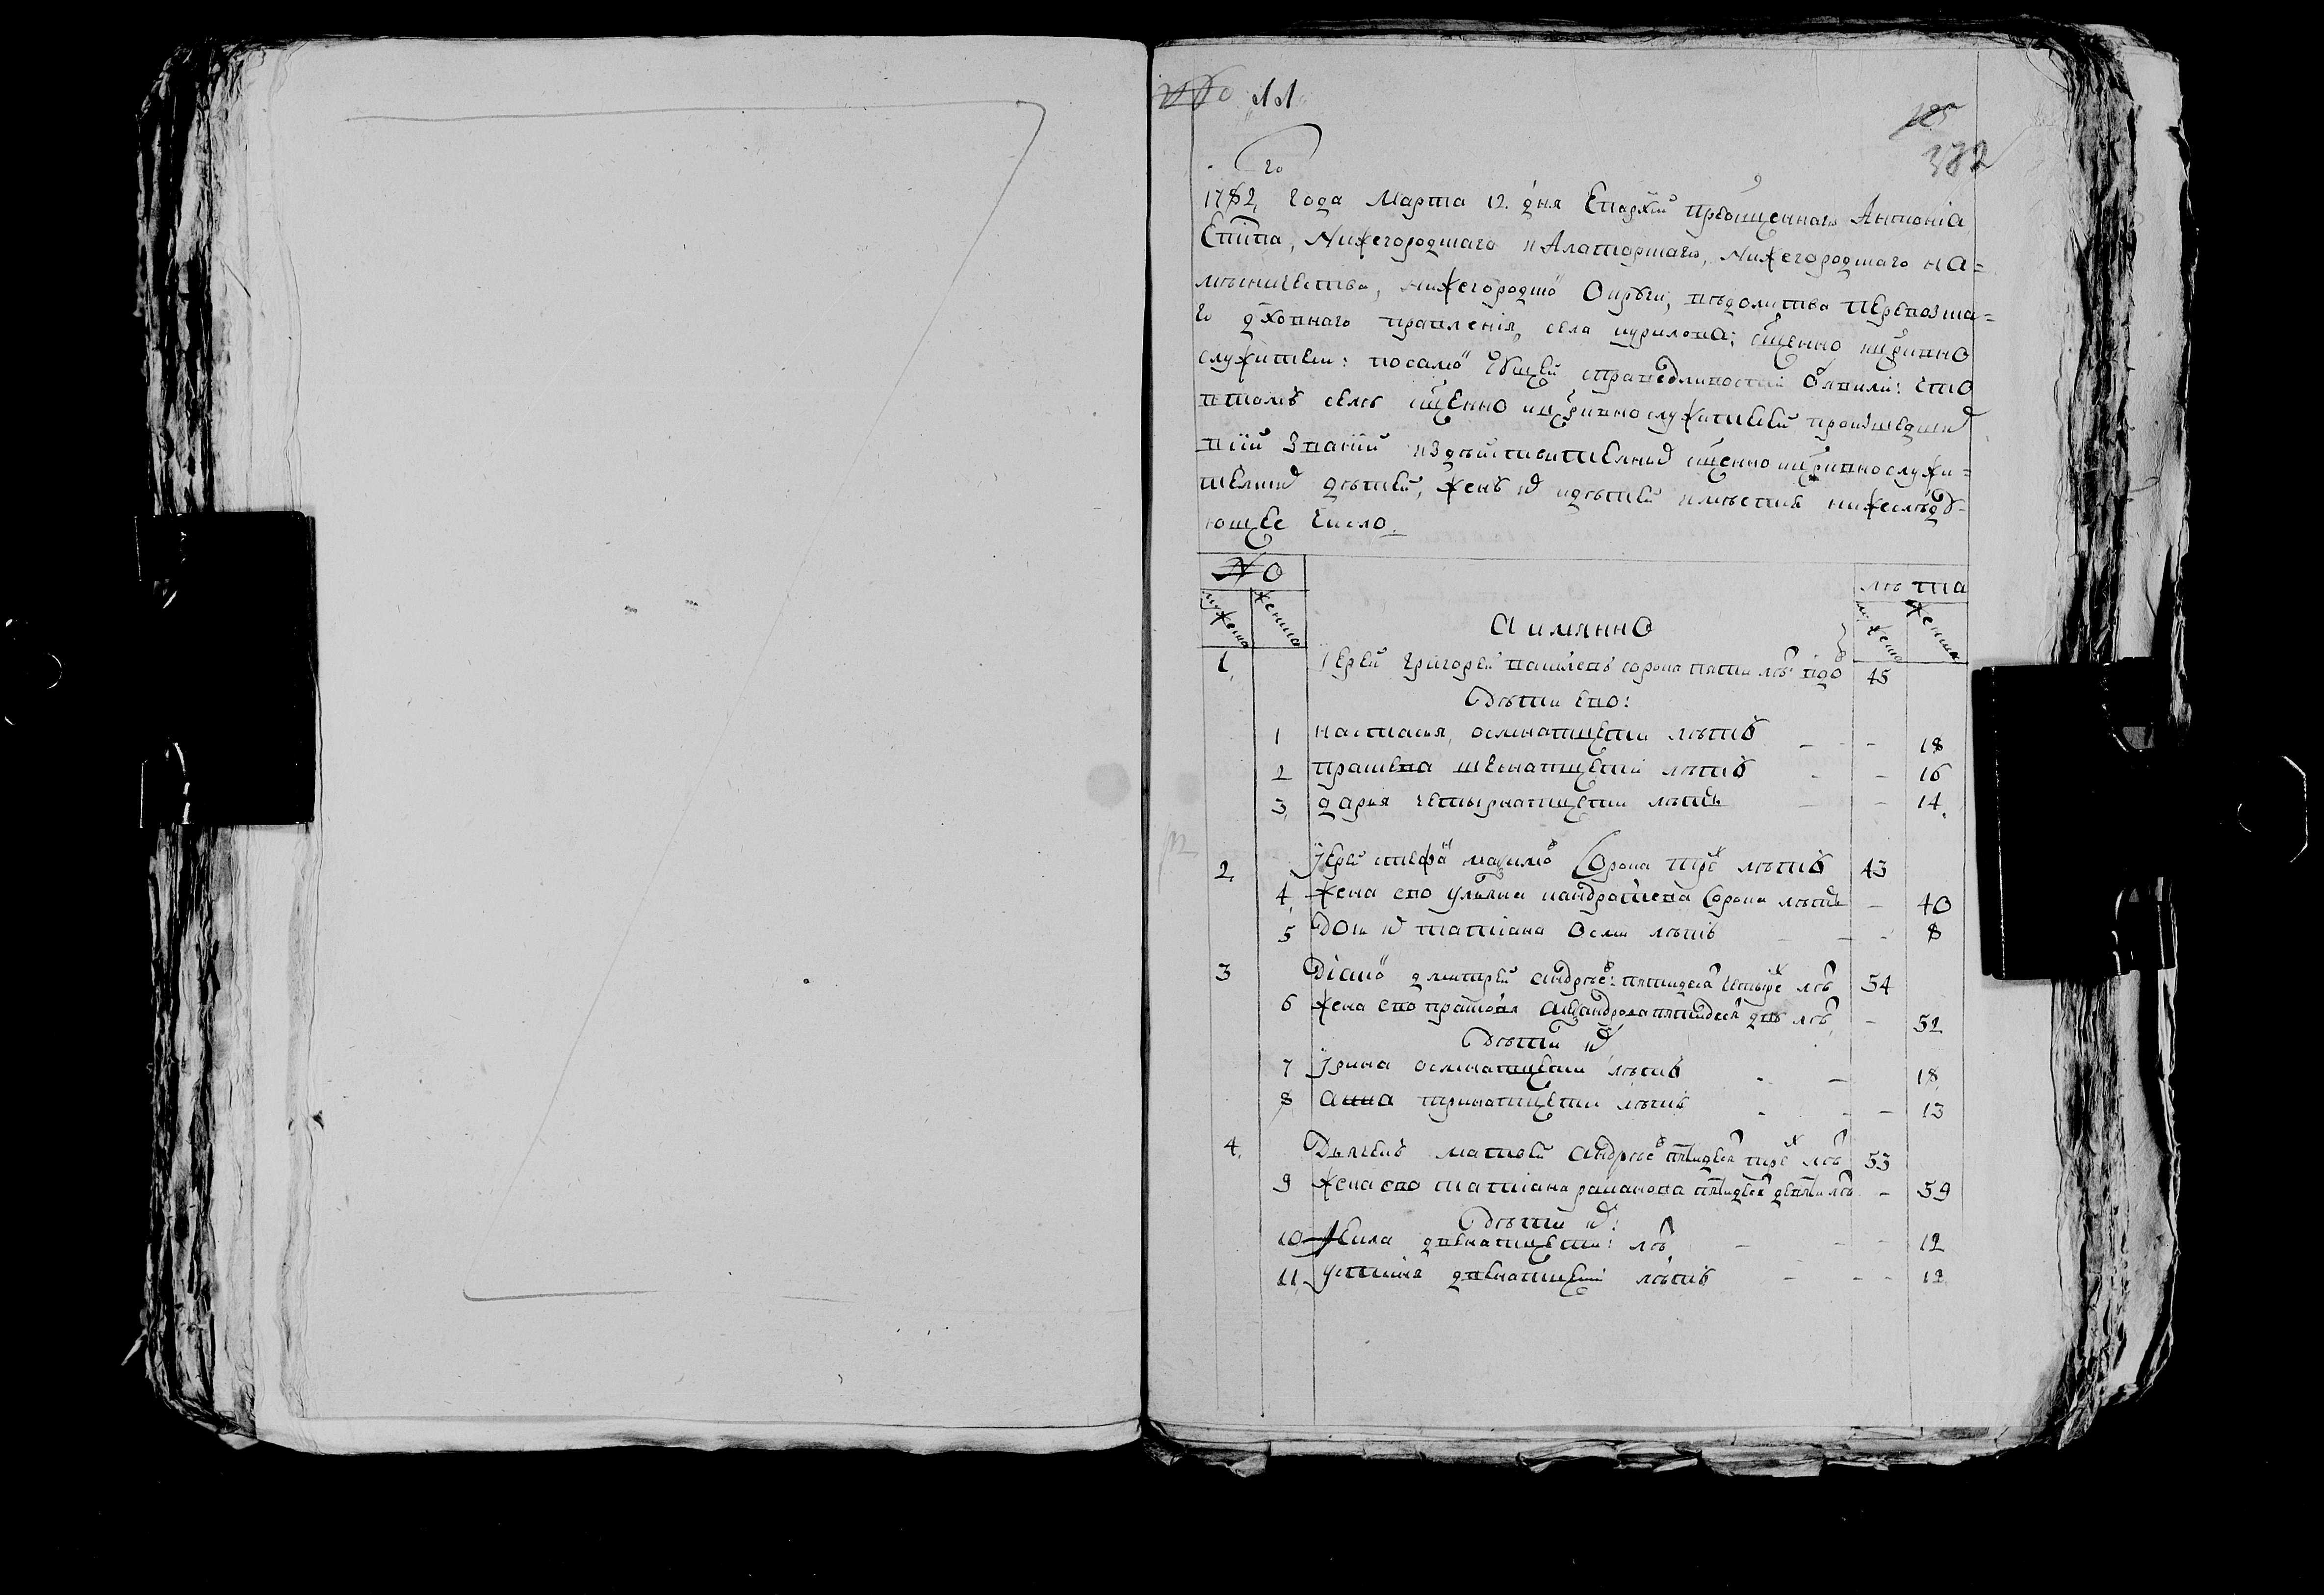 № 11
382
го
1782 года Марта 12 дня Епархiи прѣосщеннаго Антонiа
Епīпа, Нижегородцкаго и Алаторскаго, Нижегородцкаго на=
мѣсничества, нижегородцкой Окрѵги, вѣдомства Перевозска=
го дховнаго правленiя, села курилова; сщенно и црковно
служители: по самой сущей справедливости обявили: что
в томъ селѣ сщенно и црковнослужителей произшедших
в сiи званiи из дѣйствителных сщенно и црковнослужи=
телских дѣтей, женъ их и дѣтей имѣется нижеслѣдꙋ=
ющее число.
№ лѣта
мужеска женска мужеска женска
а имянно
1 Іерей Григорей васильевъ сорока пяти лѣт вдов 45
Дѣти ево:
1 настасья, осмнатцети лѣтъ - - 18
2 прасковья шеснатцети лѣтъ - 16
3 дарья четырнатцети лѣтъ - - 14
2 Іерей стефан маѯимов Сорока трех лѣтъ 43
4 жена ево ульяна кандратьева Сорока лѣтъ - 40
5 дочь их татiана Осми лѣтъ - - 8
3 Дiакон дмитрей андрѣев: пятидесят четырех лѣт 54
6 жена ево прасковья алеѯандрова пятидесят двѣ лѣт - 52
Дѣти их
7 Ірина осмнатцети лѣтъ - 18
8 анна тринатцети лѣтъ - - 13
4 Дьячекъ матвей андрѣев пятидесят трех лѣт 53
9 жена ево татiана раманова пятидесят девяти лѣт - 59
Дѣти их:
10 двенатцети: лѣт - - - 12
11 устинья двенатцети лѣтъ - - - 12